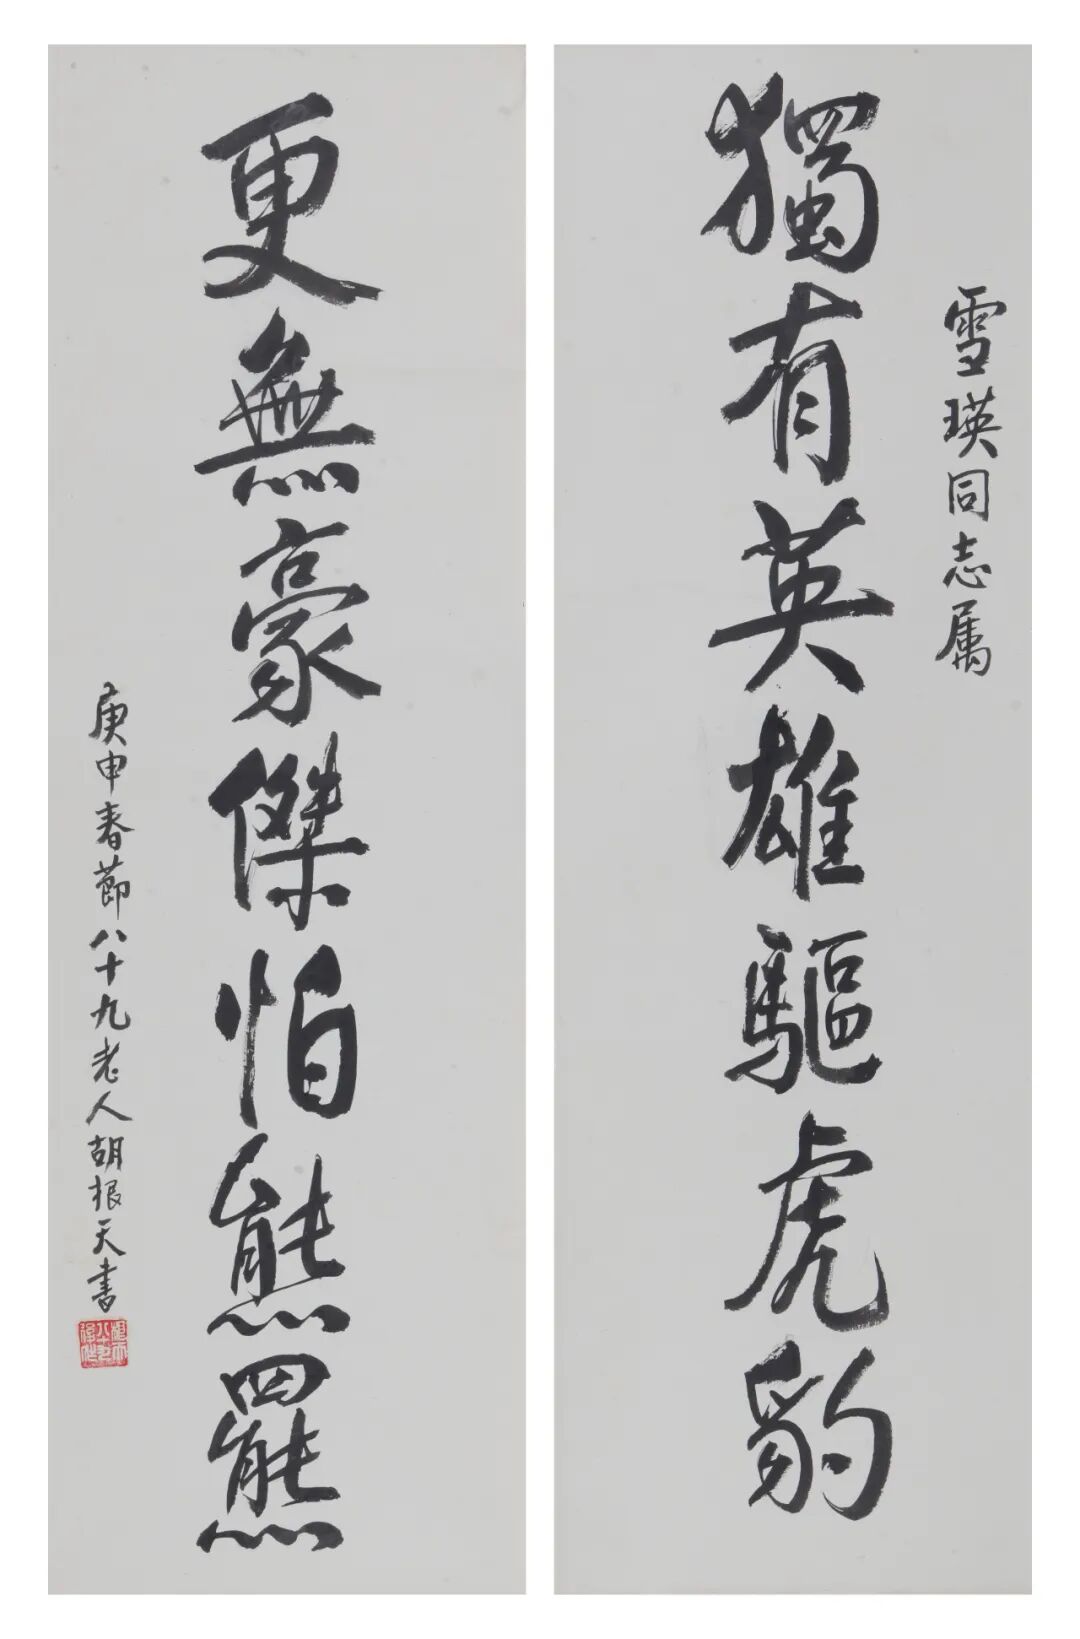 雪瑛同志属
獨有英雄驅虎豹
更無豪傑怕熊羆
庚申春節八十九老人胡根天书